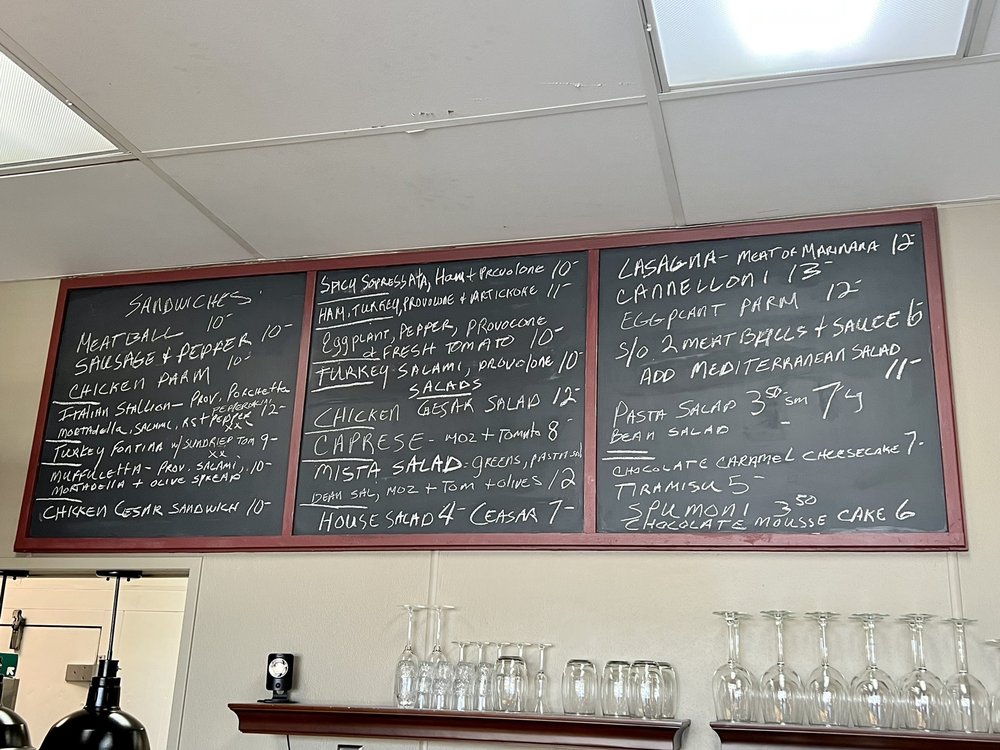 SANDWICHES
MEATBALL 10-
SAUSAGE & PEPPER 10-
CHICKEN PARM 10-
ITALIAN STALLION - PROV, PORCHETTA
MORTADELLA, SALAMI, RST PEPPER 12-
TURKEY FONTINA W/ SUNDRIED TOM 9-
MUFFULETTA - PROV, SALAMI, 10-
MORTADELLA + OLIVE SPREAD
CHICKEN CESAR SANDWICH 10-
SPICY SOPRESSATA, HAM + PROVOLONE 10-
HAM, TURKEY, PROVOLONE & ARTICHOKE 11-
EGGPLANT, PEPPER, PROVOLONE
& FRESH TOMATO 10-
TURKEY - SALAMI, PROVOLONE 10-
SALADS
CHICKEN CESAR SALAD 12-
CAPRESE - MOZ + TOMATO 8-
MISTA SALAD - GREENS, PASTA SAL
BEAN SAL, MOZ + TOM + OLIVES 12
HOUSE SALAD 4- CEASAR 7-
LASAGNA - MEAT OR MARINARA 12-
CANNELLONI 13-
EGGPLANT PARM 12-
S/O 2 MEATBALLS + SAUCE 6-
ADD MEDITERRANEAN SALAD
11-
PASTA SALAD 3 50 SM 7 Lg
BEAN SALAD -
CHOCOLATE CARAMEL CHEESECAKE 7-
TIRAMISU 5-
SPUMONI 3 50
CHOCOLATE MOUSSE CAKE 6